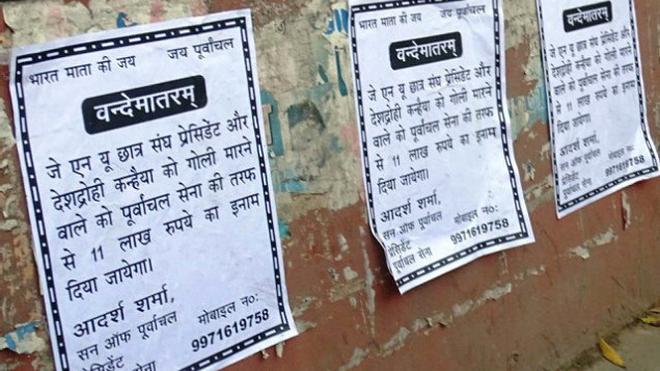 भारत माता की जय जय पूर्वांचल
वन्देमातरम्
जे एन यू छात्र संघ प्रेसिडेंट और
देशद्रोही कन्हैया को गोली मारने
वाले को पूर्वांचल सेना की तरफ
से 11 लाख रुपये का इनाम
दिया जायेगा।
आदर्श शर्मा,
सन ऑफ पूर्वांचल मोबाइल नः
प्रेसिडेंट 9971619758
पूर्वांचल सेना
भारत माता की जय जय पूर्वांचल
वन्देमातरम्
जे एन यू छात्र संघ प्रेसिडेंट और
देशद्रोही कन्हैया को गोली मारने
वाले को पूर्वांचल सेना की तरफ
से 11 लाख रुपये का इनाम
दिया जायेगा।
आदर्श शर्मा,
सन ऑफ पूर्वांचल मोबाइल नः
प्रेसिडेंट 9971619758
पूर्वांचल सेना
वन्देमातरम्
जे एन यू छात्र संघ प्रेसिडेंट और
देशद्रोही कन्हैया को गोली मारने
वाले को पूर्वांचल सेना की तरफ
से 11 लाख रुपये का इनाम
दिया जायेगा।
आदर्श शर्मा,
सन ऑफ पूर्वांचल मोबाइल नः
प्रेसिडेंट 9971619758
पूर्वांचल सेना